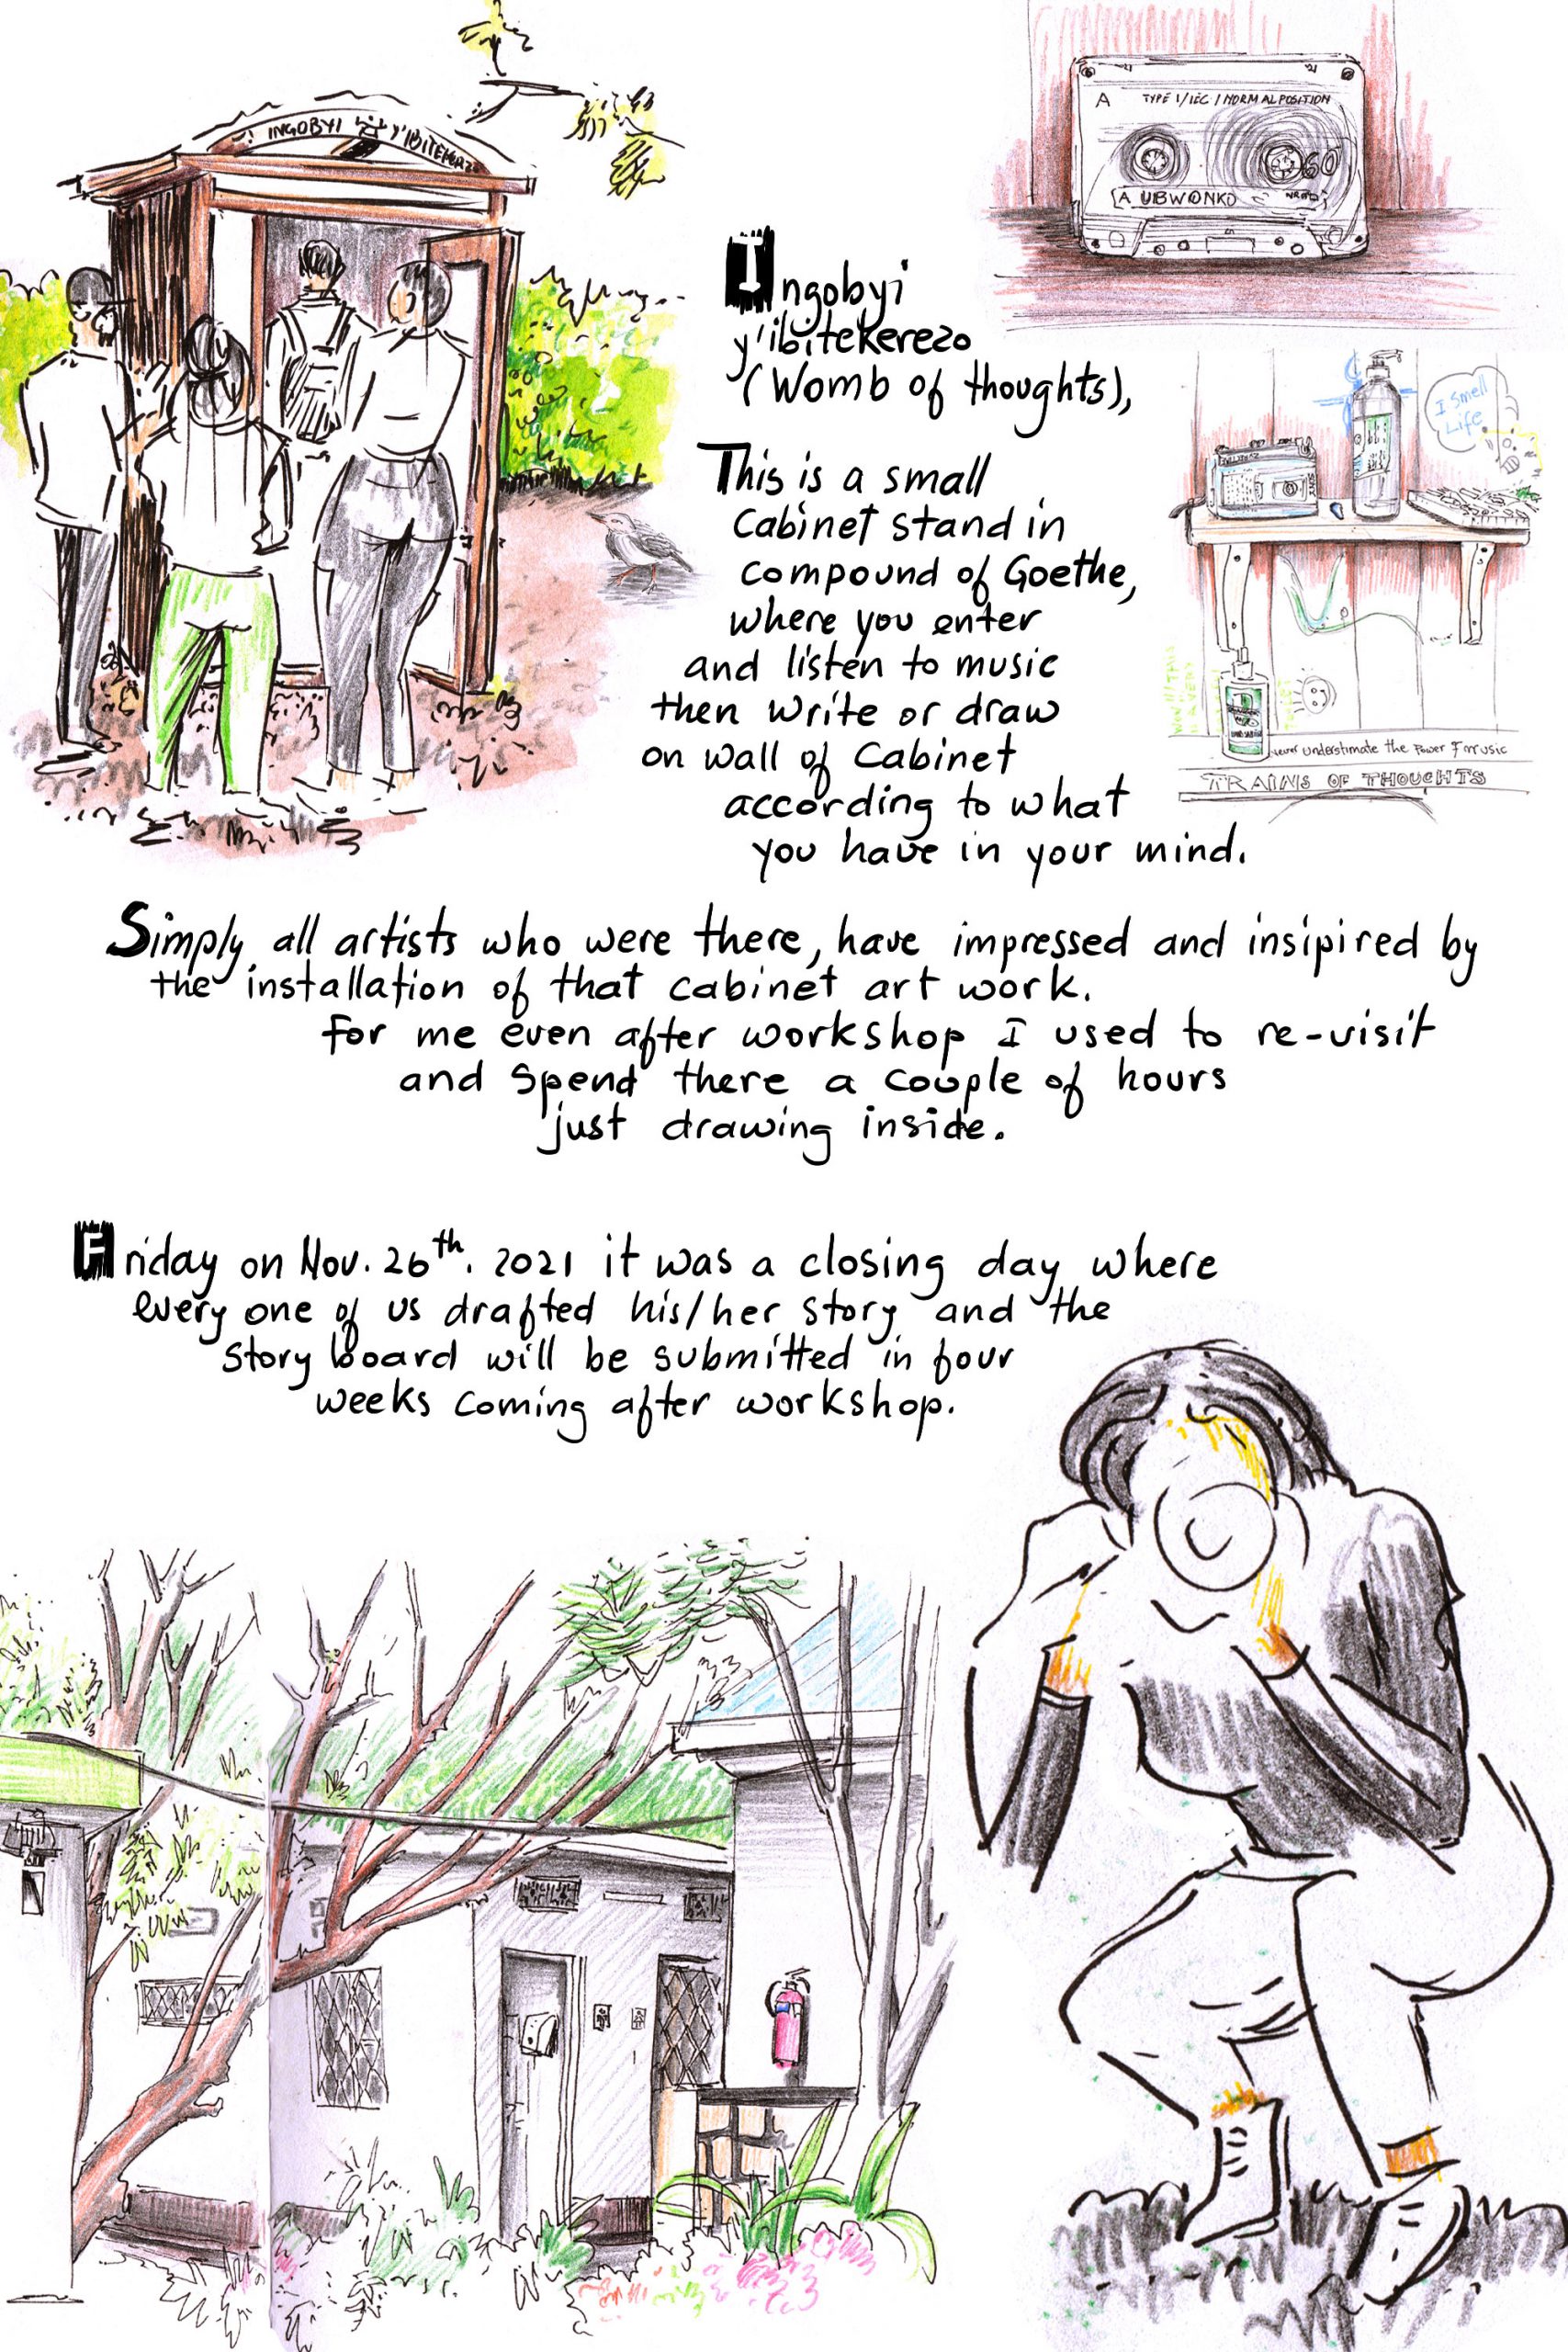 INGOBYI Y'IBITEKEREZO
A TYPE I/IEC I NORMAL POSITION
60
A UBWONKO
Ingobyi
y'ibitekerezo
(Womb of thoughts),
This is a small
Cabinet stand in
compound of Goethe,
where you enter
and listen to music
then write or draw
on wall of Cabinet
according to what
you have in your mind.
I smell
Life
never understimate the Power of music
TRAINS OF THOUGHTS
Simply all artists who were there, have impressed and insipired by
the installation of that cabinet art work.
for me even after workshop I used to re-visit
and spend there a couple of hours
just drawing inside.
Friday on Nov. 26th. 2021 it was a closing day where
every one of us drafted his/her story and the
story board will be submitted in four
weeks coming after workshop.